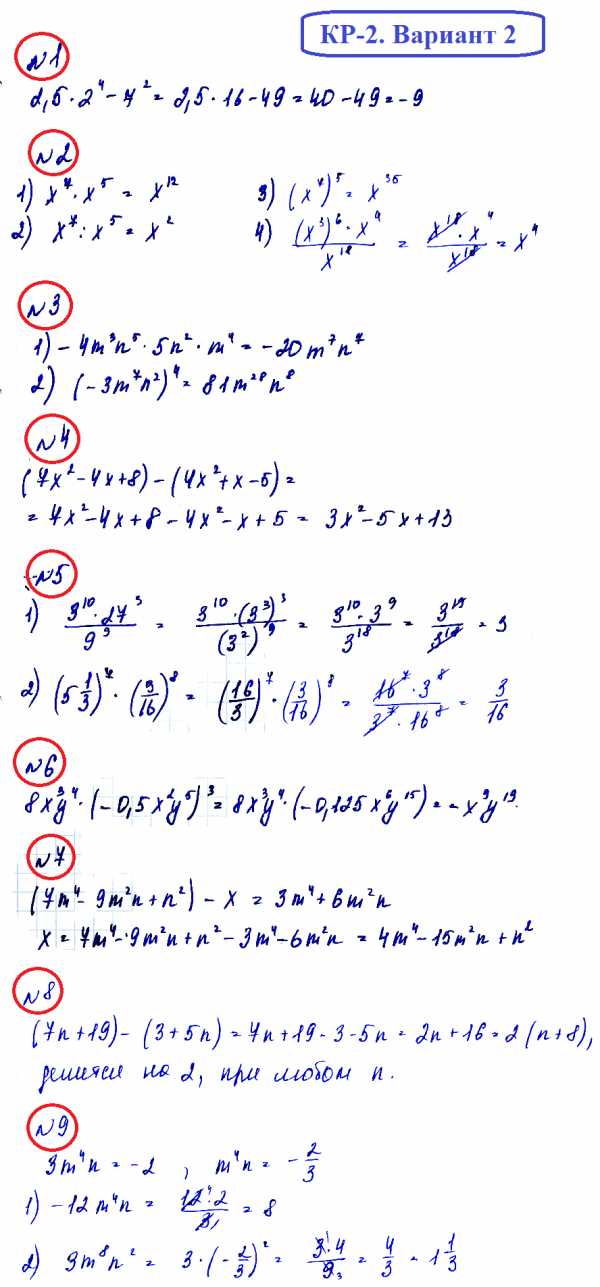 КР-2. Вариант 2
№1
2,5·2⁴-7²=2,5·16-49=40-49=-9
№2
1) x⁷·x⁵ = x¹²
3) (x⁷)⁵ = x³⁵
2) x⁷:x⁵ = x²
4) (x³)⁶·x⁴/x¹⁸ = x¹⁸·x⁴/x¹⁸ = x⁴
№3
1) -4m³n⁵·5n²·m⁴ = -20m⁷n⁷
2) (-3m⁷n²)⁴ = 81m²⁸n⁸
№4
(7x²-4x+8)-(4x²+x-5)=
= 7x²-4x+8-4x²-x+5 = 3x²-5x+13
№5
1) 3¹⁰·27³/9⁹ = 3¹⁰·(3³)³/(3²)⁹ = 3¹⁰·3⁹/3¹⁸ = 3¹⁹/3¹⁸ = 3
2) (5 1/3)⁷·(3/16)⁸ = (16/3)⁷·(3/16)⁸ = 16⁷·3⁸/3⁷·16⁸ = 3/16
№6
8x³y⁴·(-0,5x²y⁵)³ = 8x³y⁴·(-0,125x⁶y¹⁵) = -x⁹y¹⁹.
№7
(7m⁴-9m²n+n²)-x = 3m⁴+6m²n
x = 7m⁴-9m²n+n²-3m⁴-6m²n = 4m⁴-15m²n+n²
№8
(7n+19)-(3+5n) = 7n+19-3-5n = 2n+16 = 2(n+8),
делится на 2, при любом n.
№9
3m⁴n = -2 , m⁴n = -2/3
1) -12m⁴n = 12·2/3 = 8
2) 3m⁸n² = 3·(-2/3)² = 3·4/9 = 4/3 = 1 1/3